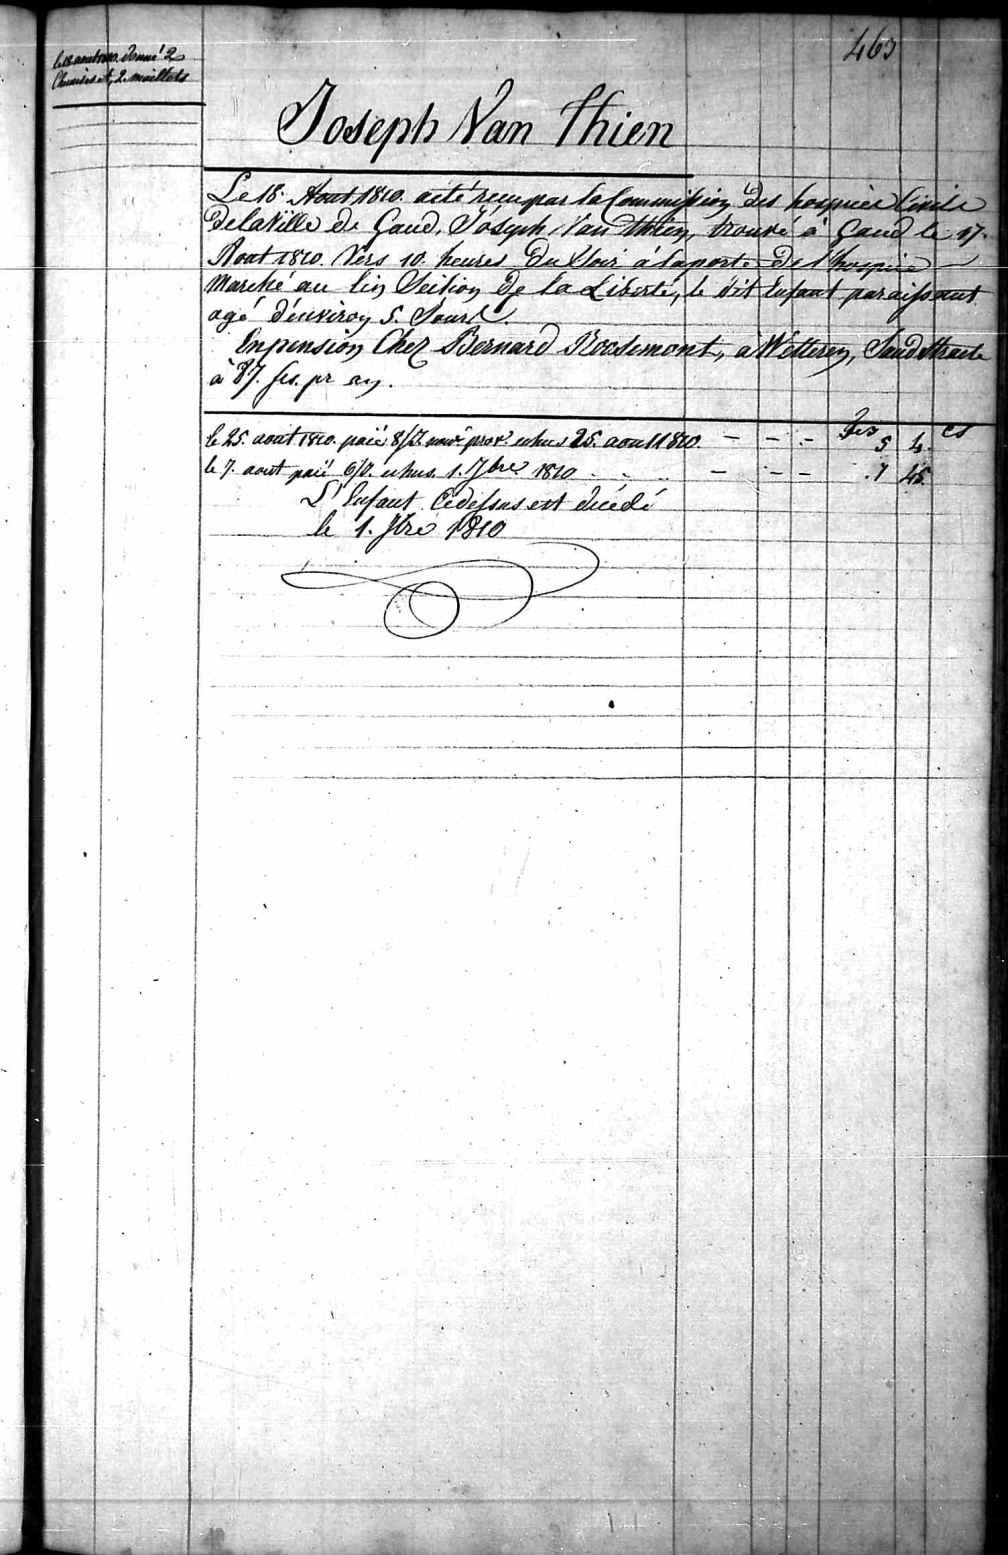 463
le 18 aout 1810. donné 2
Chemises et, 2. maillots
Joseph Van Thien
Le 18. Aout 1810. a été recu par la Commission des hospices Civils
De la Ville de Gand, Joseph Van Thien, trouvé à Gand le 17.
Aout 1810. Vers 10. heures Du Soir à la porte de l'hospice
Marché au lin Section De la Liberté, le dit Enfant paraissant
agé d'environ 5. Jours.
En pension Chez Bernard Roosemont, à Wetteren, Sandstraete
à 87. fcs. pr an.
fcs cs
le 25. aout 1810. paié 8/ echus 25. aout 1810 - - - 5 4.
le 7. aout paié echus. 1. 7bre 1810 - - - . 1 45.
L'Enfant Cidessus est décédé
le 1. 7bre 1810